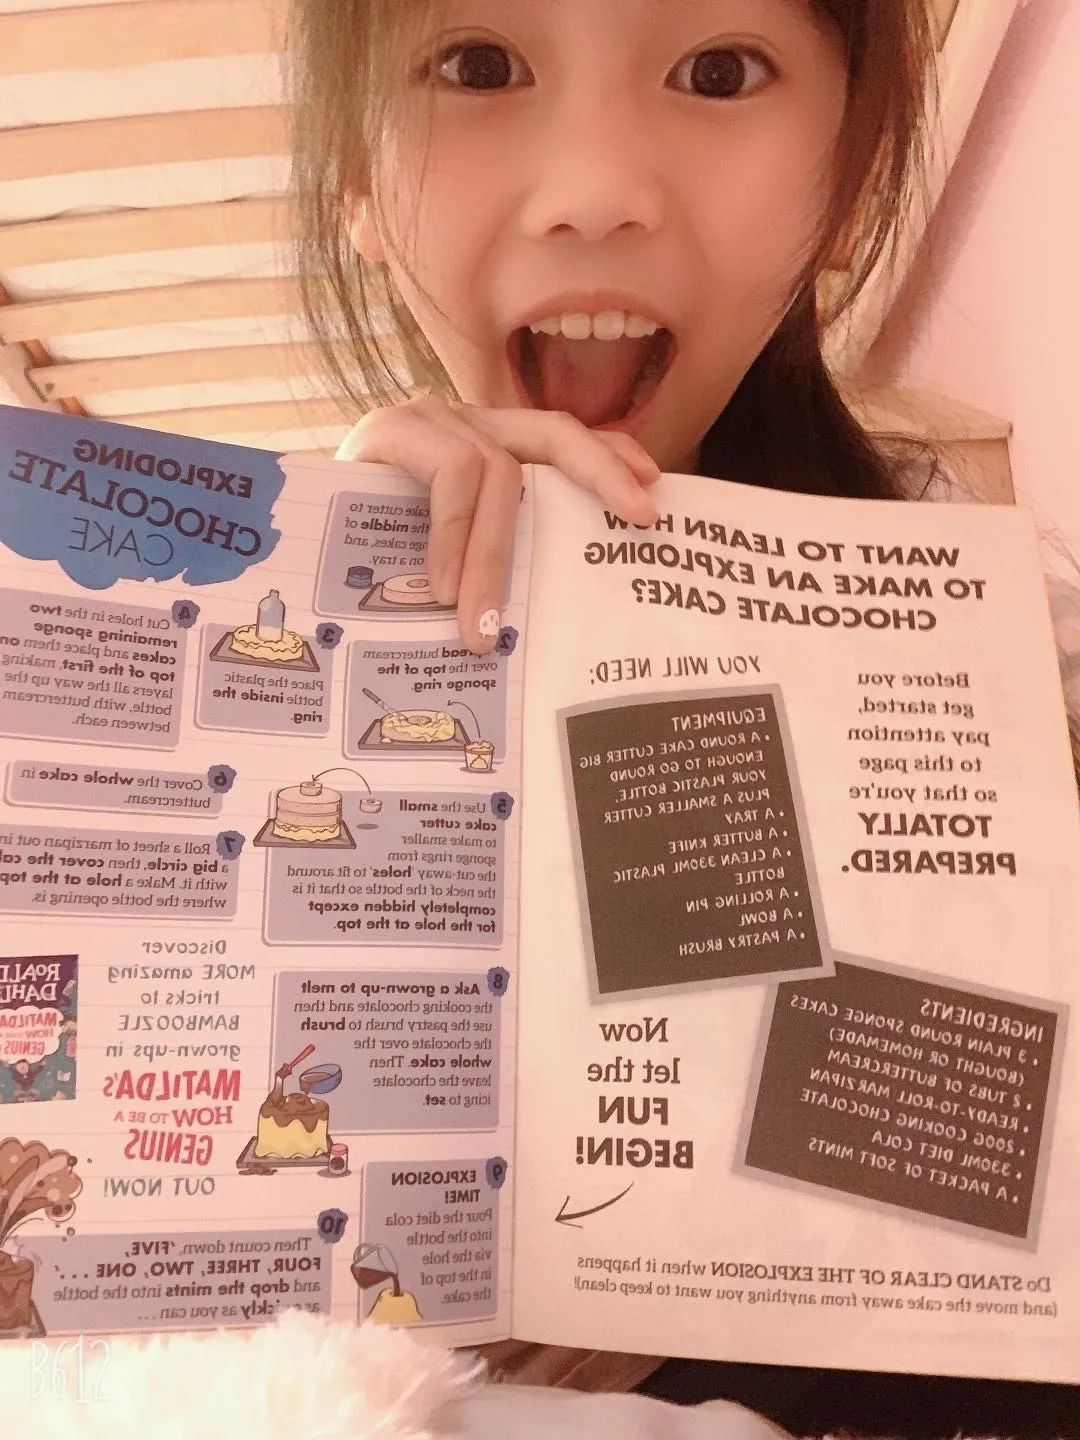 WANT TO LEARN HOW
TO MAKE AN EXPLODING
CHOCOLATE CAKE?
YOU WILL NEED:
Before you
get started,
pay attention
to this page
so that you're
TOTALLY
PREPARED.
EQUIPMENT
• A ROUND CAKE CUTTER BIG
ENOUGH TO GO ROUND
YOUR PLASTIC BOTTLE,
PLUS A SMALLER CUTTER
• A TRAY
• A BUTTER KNIFE
• A CLEAN 330ML PLASTIC
BOTTLE
• A ROLLING PIN
• A BOWL
• A PASTRY BRUSH
INGREDIENTS
• 3 PLAIN ROUND SPONGE CAKES
(BOUGHT OR HOMEMADE)
• 2 TUBS OF BUTTERCREAM
• READY-TO-ROLL MARZIPAN
• 200G COOKING CHOCOLATE
• 330ML DIET COLA
• A PACKET OF SOFT MINTS
Now
let the
FUN
BEGIN!
Do STAND CLEAR OF THE EXPLOSION when it happens
(and move the cake away from anything you want to keep clean!)
EXPLODING
CHOCOLATE
CAKE
cake cutter to
the middle of
cakes, and
on a tray.
2
buttercream
over the top of the
sponge ring.
3
Place the plastic
bottle inside the
ring.
4
Cut holes in the two
remaining sponge
cakes and place them on
top of the first, making
layers all the way up the
bottle, with buttercream
between each.
5
Use the small
cake cutter
to make smaller
sponge rings from
the cut-away 'holes' to fit around
the neck of the bottle so that it is
completely hidden except
for the hole at the top.
6
Cover the whole cake in
buttercream.
7
Roll a sheet of marzipan out in
a big circle, then cover the
with it. Make a hole at the top
where the bottle opening is.
8
Ask a grown-up to melt
the cooking chocolate and then
use the pastry brush to brush
the chocolate over the
whole cake. Then
leave the chocolate
icing to set.
9
EXPLOSION
TIME!
Pour the diet cola
into the bottle
via the hole
in the top of
the cake.
10
Then count down, 'FIVE,
FOUR, THREE, TWO, ONE . . .'
and drop the mints into the bottle
as quickly as you can . . .
Discover
MORE amazing
tricks to
BAMBOOZLE
grown-ups in
MATILDA'S
HOW TO BE A
GENIUS
OUT NOW!
ROALD
DAHL
MATILDA'S
HOW
GENIUS
B612